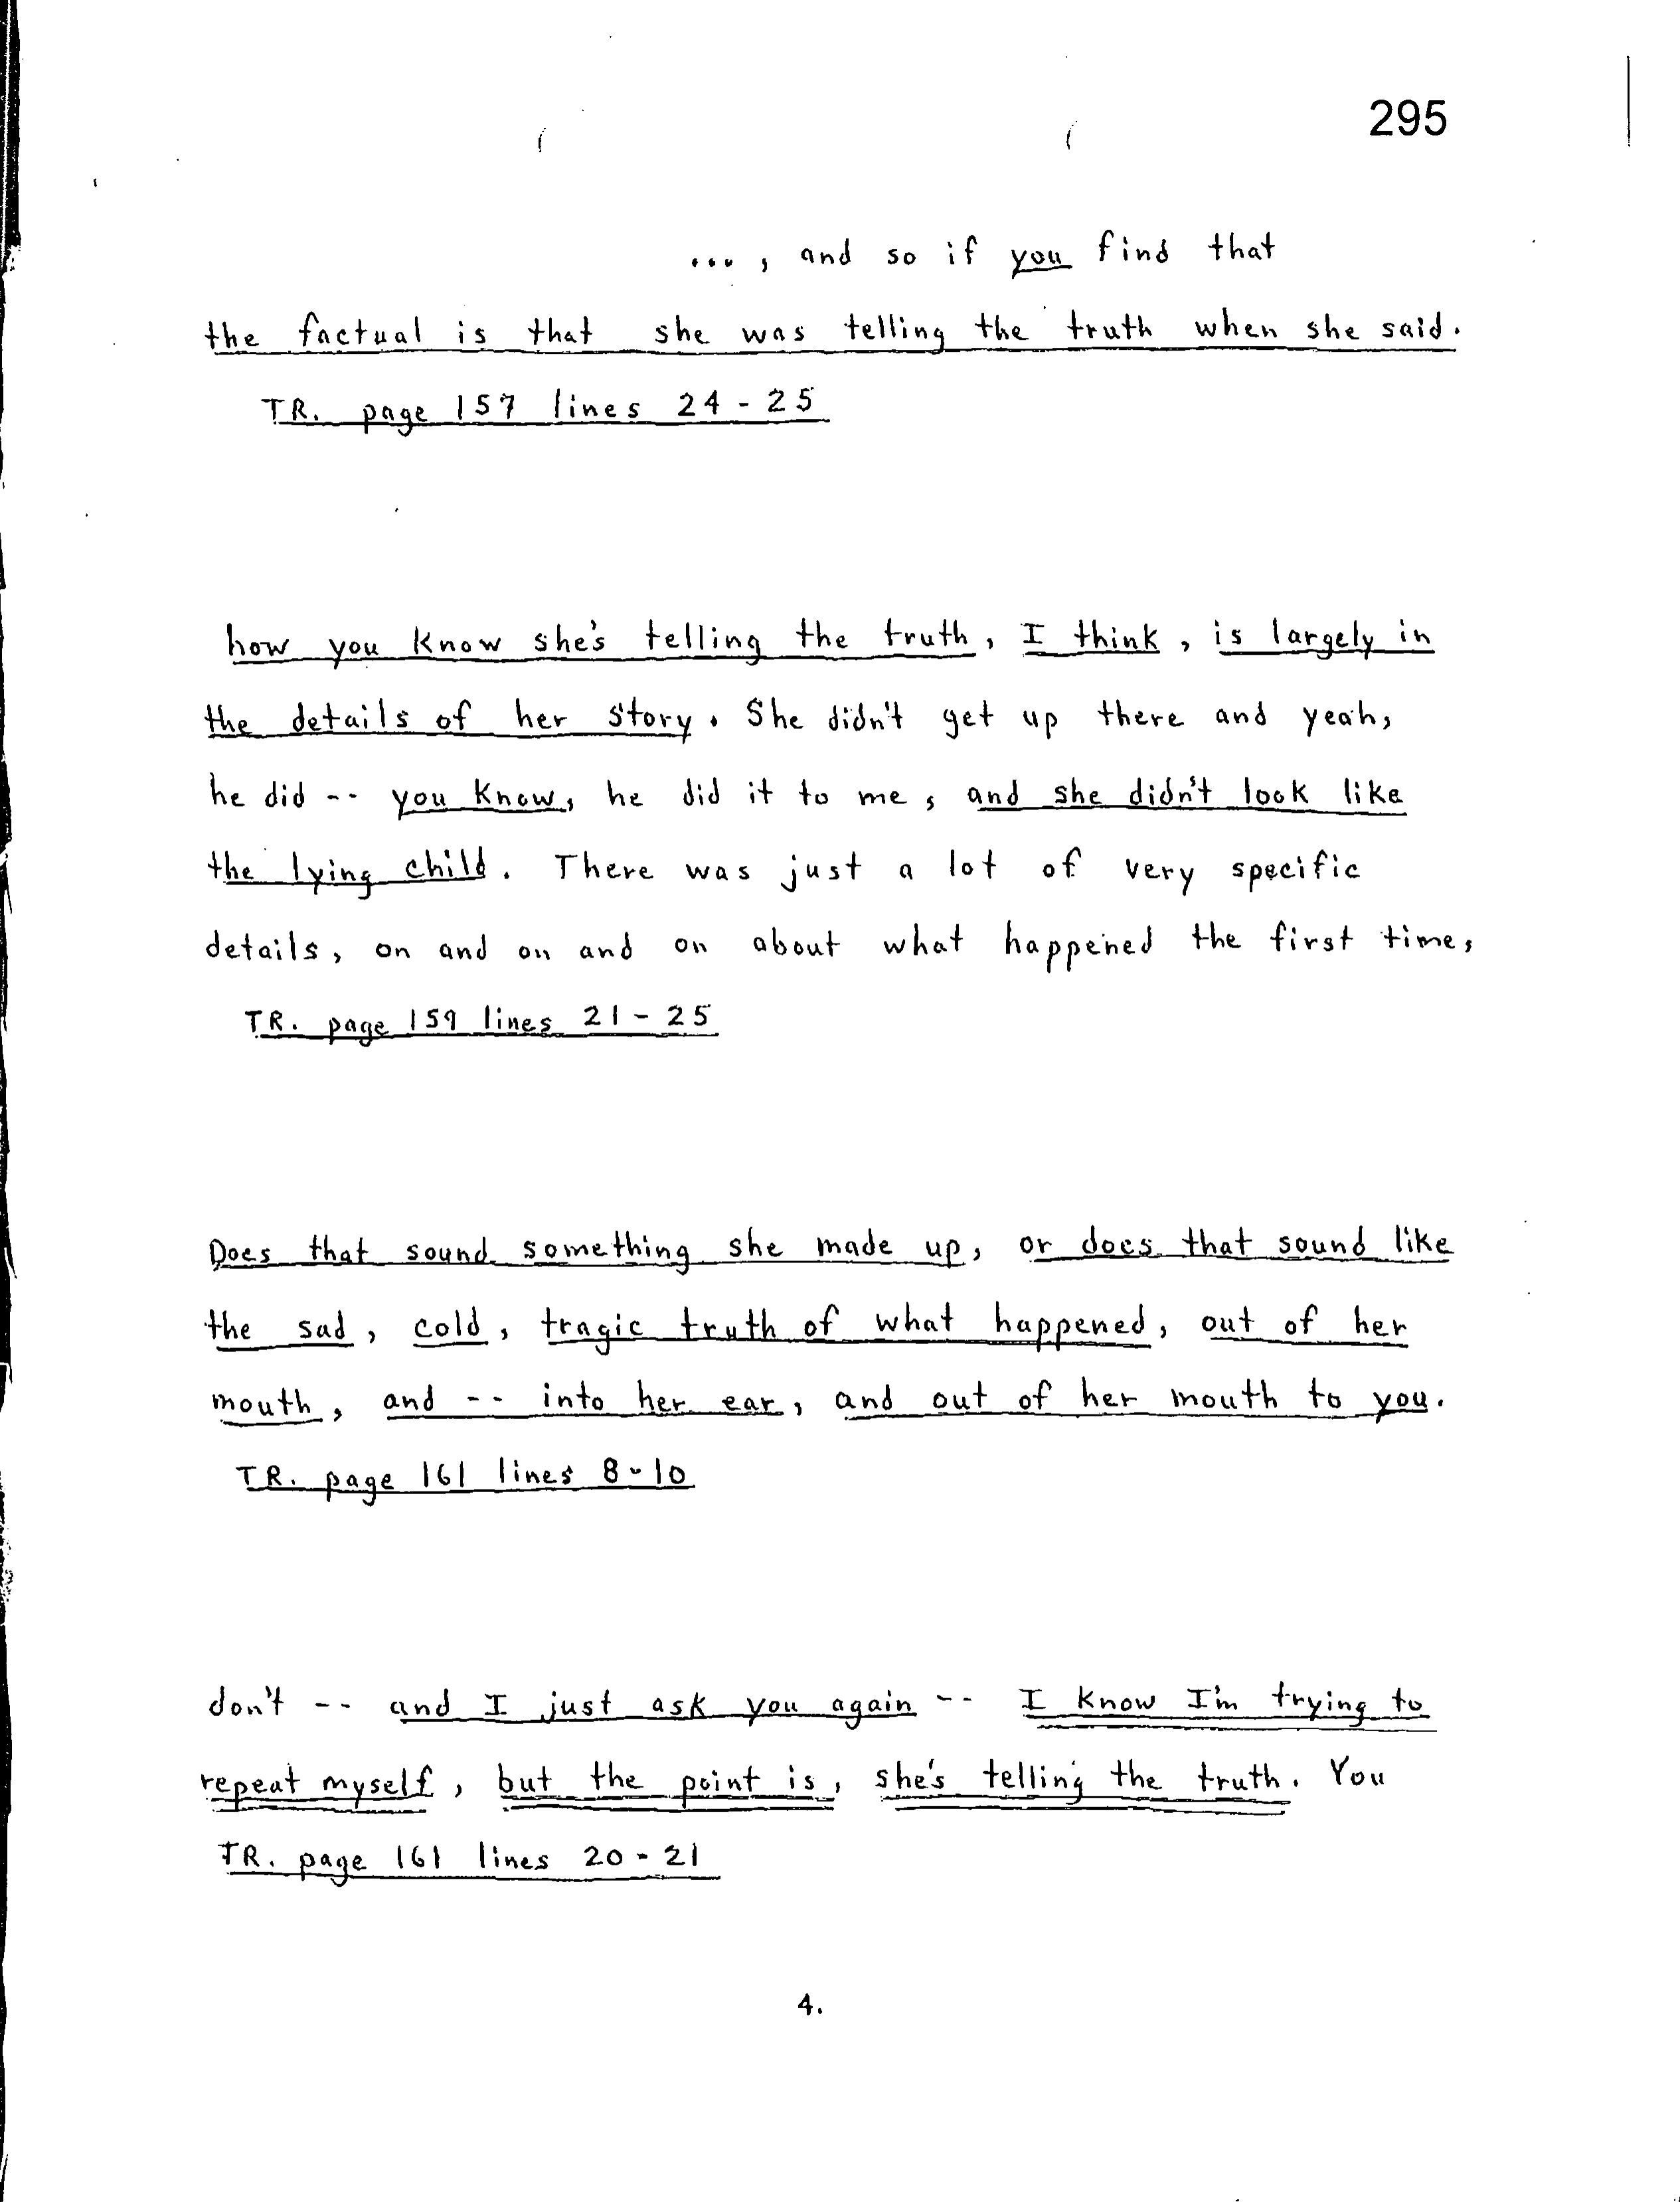 295
..., and so if you find that
the factual is that she was telling the truth when she said.
TR. page 157 lines 24-25
how you know she's telling the truth, I think, is largely in
the details of her story. She didn't get up there and yeah,
he did -- you know, he did it to me, and she didn't look like
the lying child. There was just a lot of very specific
details, on and on and on about what happened the first time,
TR. page 159 lines 21-25
Does that sound something she made up, or does that sound like
the sad, cold, tragic truth of what happened, out of her
mouth, and -- into her ear, and out of her mouth to you.
TR. page 161 lines 8-10
don't -- and I just ask you again -- I know I'm trying to
repeat myself, but the point is, she's telling the truth. You
TR. page 161 lines 20-21
4.